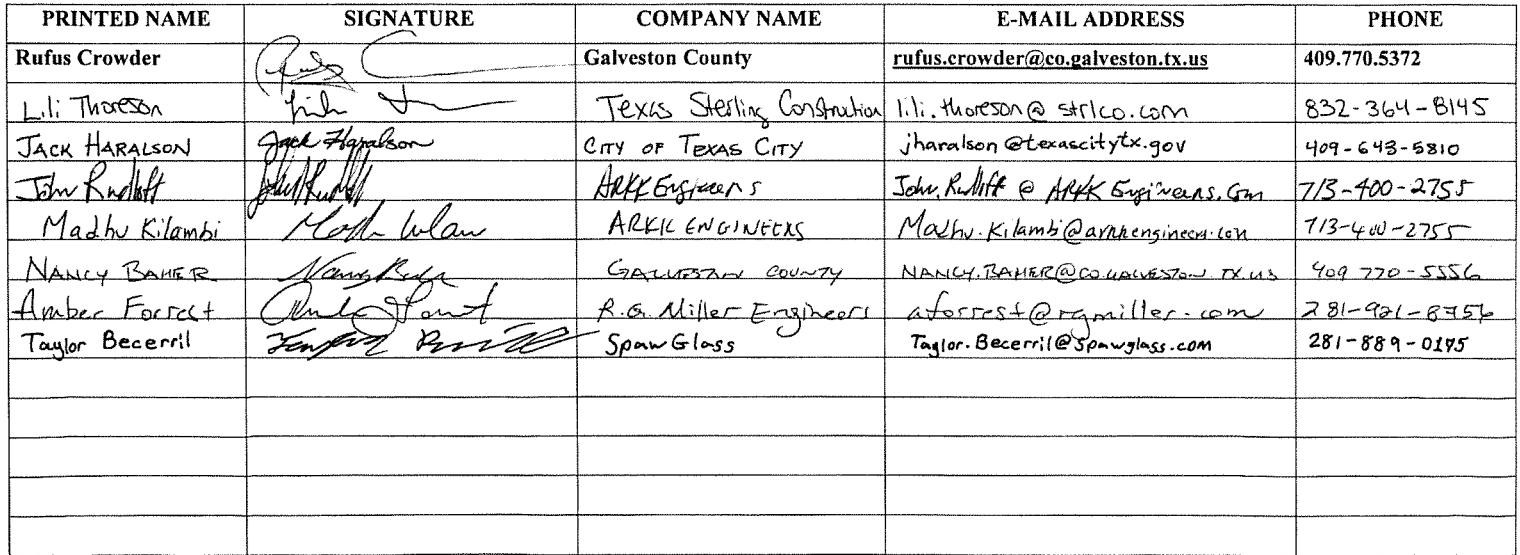 PRINTED NAME SIGNATURE COMPANY NAME E-MAIL ADDRESS PHONE
Rufus Crowder Galveston County rufus.crowder@co.galveston.tx.us 409.770.5372
Lili Thoreson Texas Sterling Construction lili.thoreson@strlco.com 832-364-8145
JACK HARALSON Jack Haralson CITY OF TEXAS CITY jharalson@texascitytx.gov 409-643-5810
John Rudloff ARKK Engineers John.Rudloff@ARKKEngineers.Com 713-400-2755
Madhu Kilambi ARKK ENGINEERS Madhu.Kilambi@arkkengineers.com 713-400-2755
NANCY BAHER GALVESTON COUNTY NANCY.BAHER@CO.GALVESTON.TX.US 409 770-5556
Amber Forrest R.G. Miller Engineers aforrest@rgmiller.com 281-921-8756
Taylor Becerril SpawGlass Taylor.Becerril@spawglass.com 281-889-0175